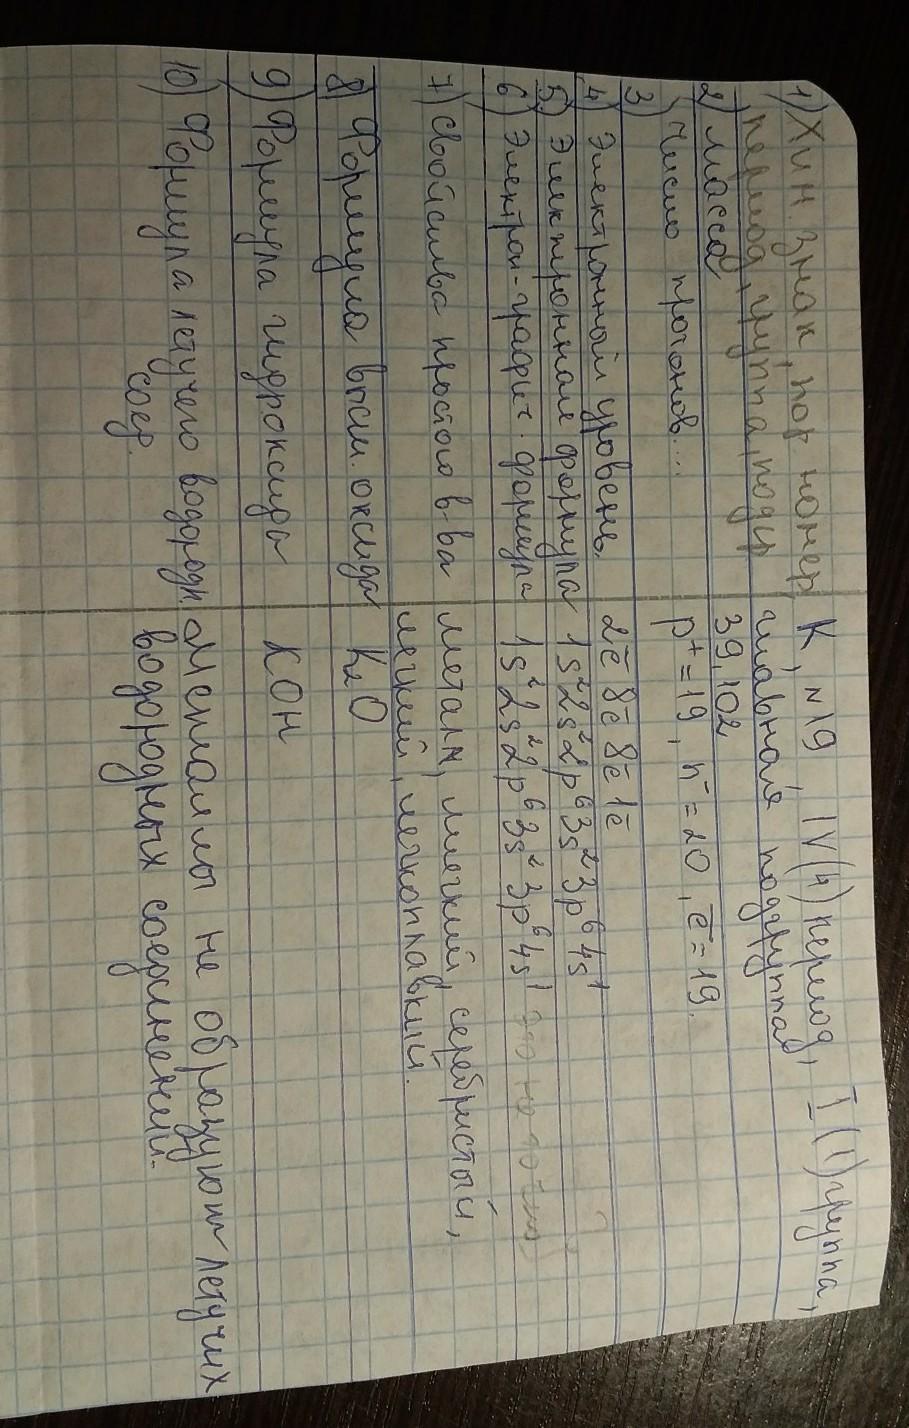 1) Хим. знак, пор номер, К, №19 IV(4) период, I (1) группа,
период, группа, подгр главная подгруппа
2) масса 39,102
3) Число протонов... p⁺=19, n⁻=20, e̅=19.
4) Электронный уровень. 2e̅ 8e̅ 8e̅ 1e̅
5) Электронная формула 1s²2s²2p⁶3s²3p⁶4s¹
6) Электрон-графич. формула 1s²2s²2p⁶3s²3p⁶4s¹
7) свойства простого в-ва металл, мягкий, серебристый,
легкий, легкоплавкий.
8) Формула высш. оксида K₂O
9) Формула гидроксида KOH
10) Формула летучего водородн. Металлы не образуют летучих
соед. водородных соединений.